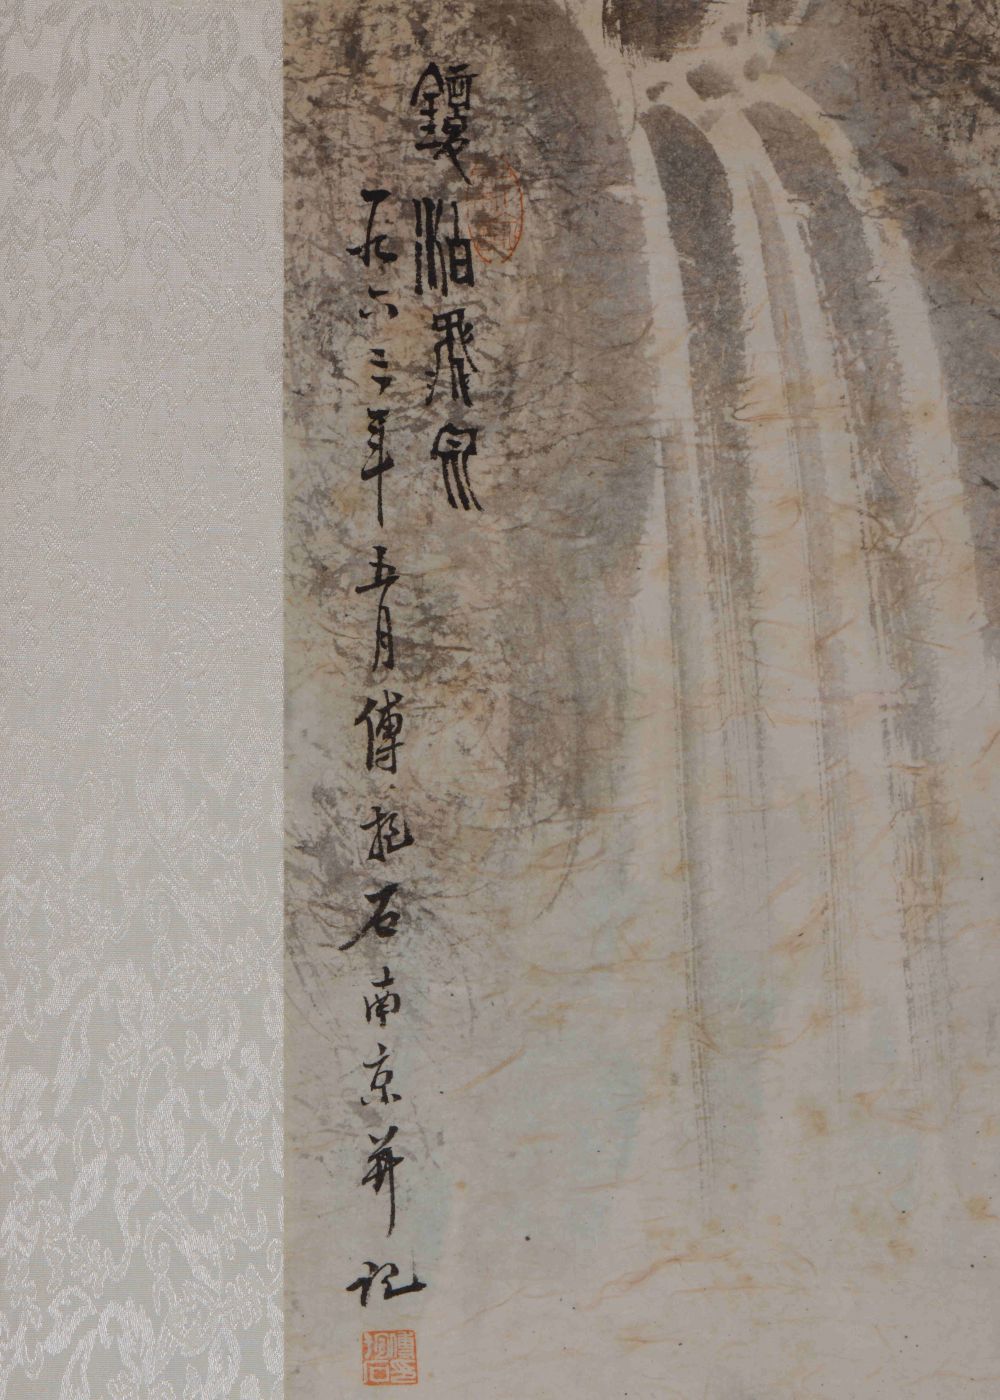 鏡泊飛泉
一九六三年五月傅抱石南京并記
傅抱石印